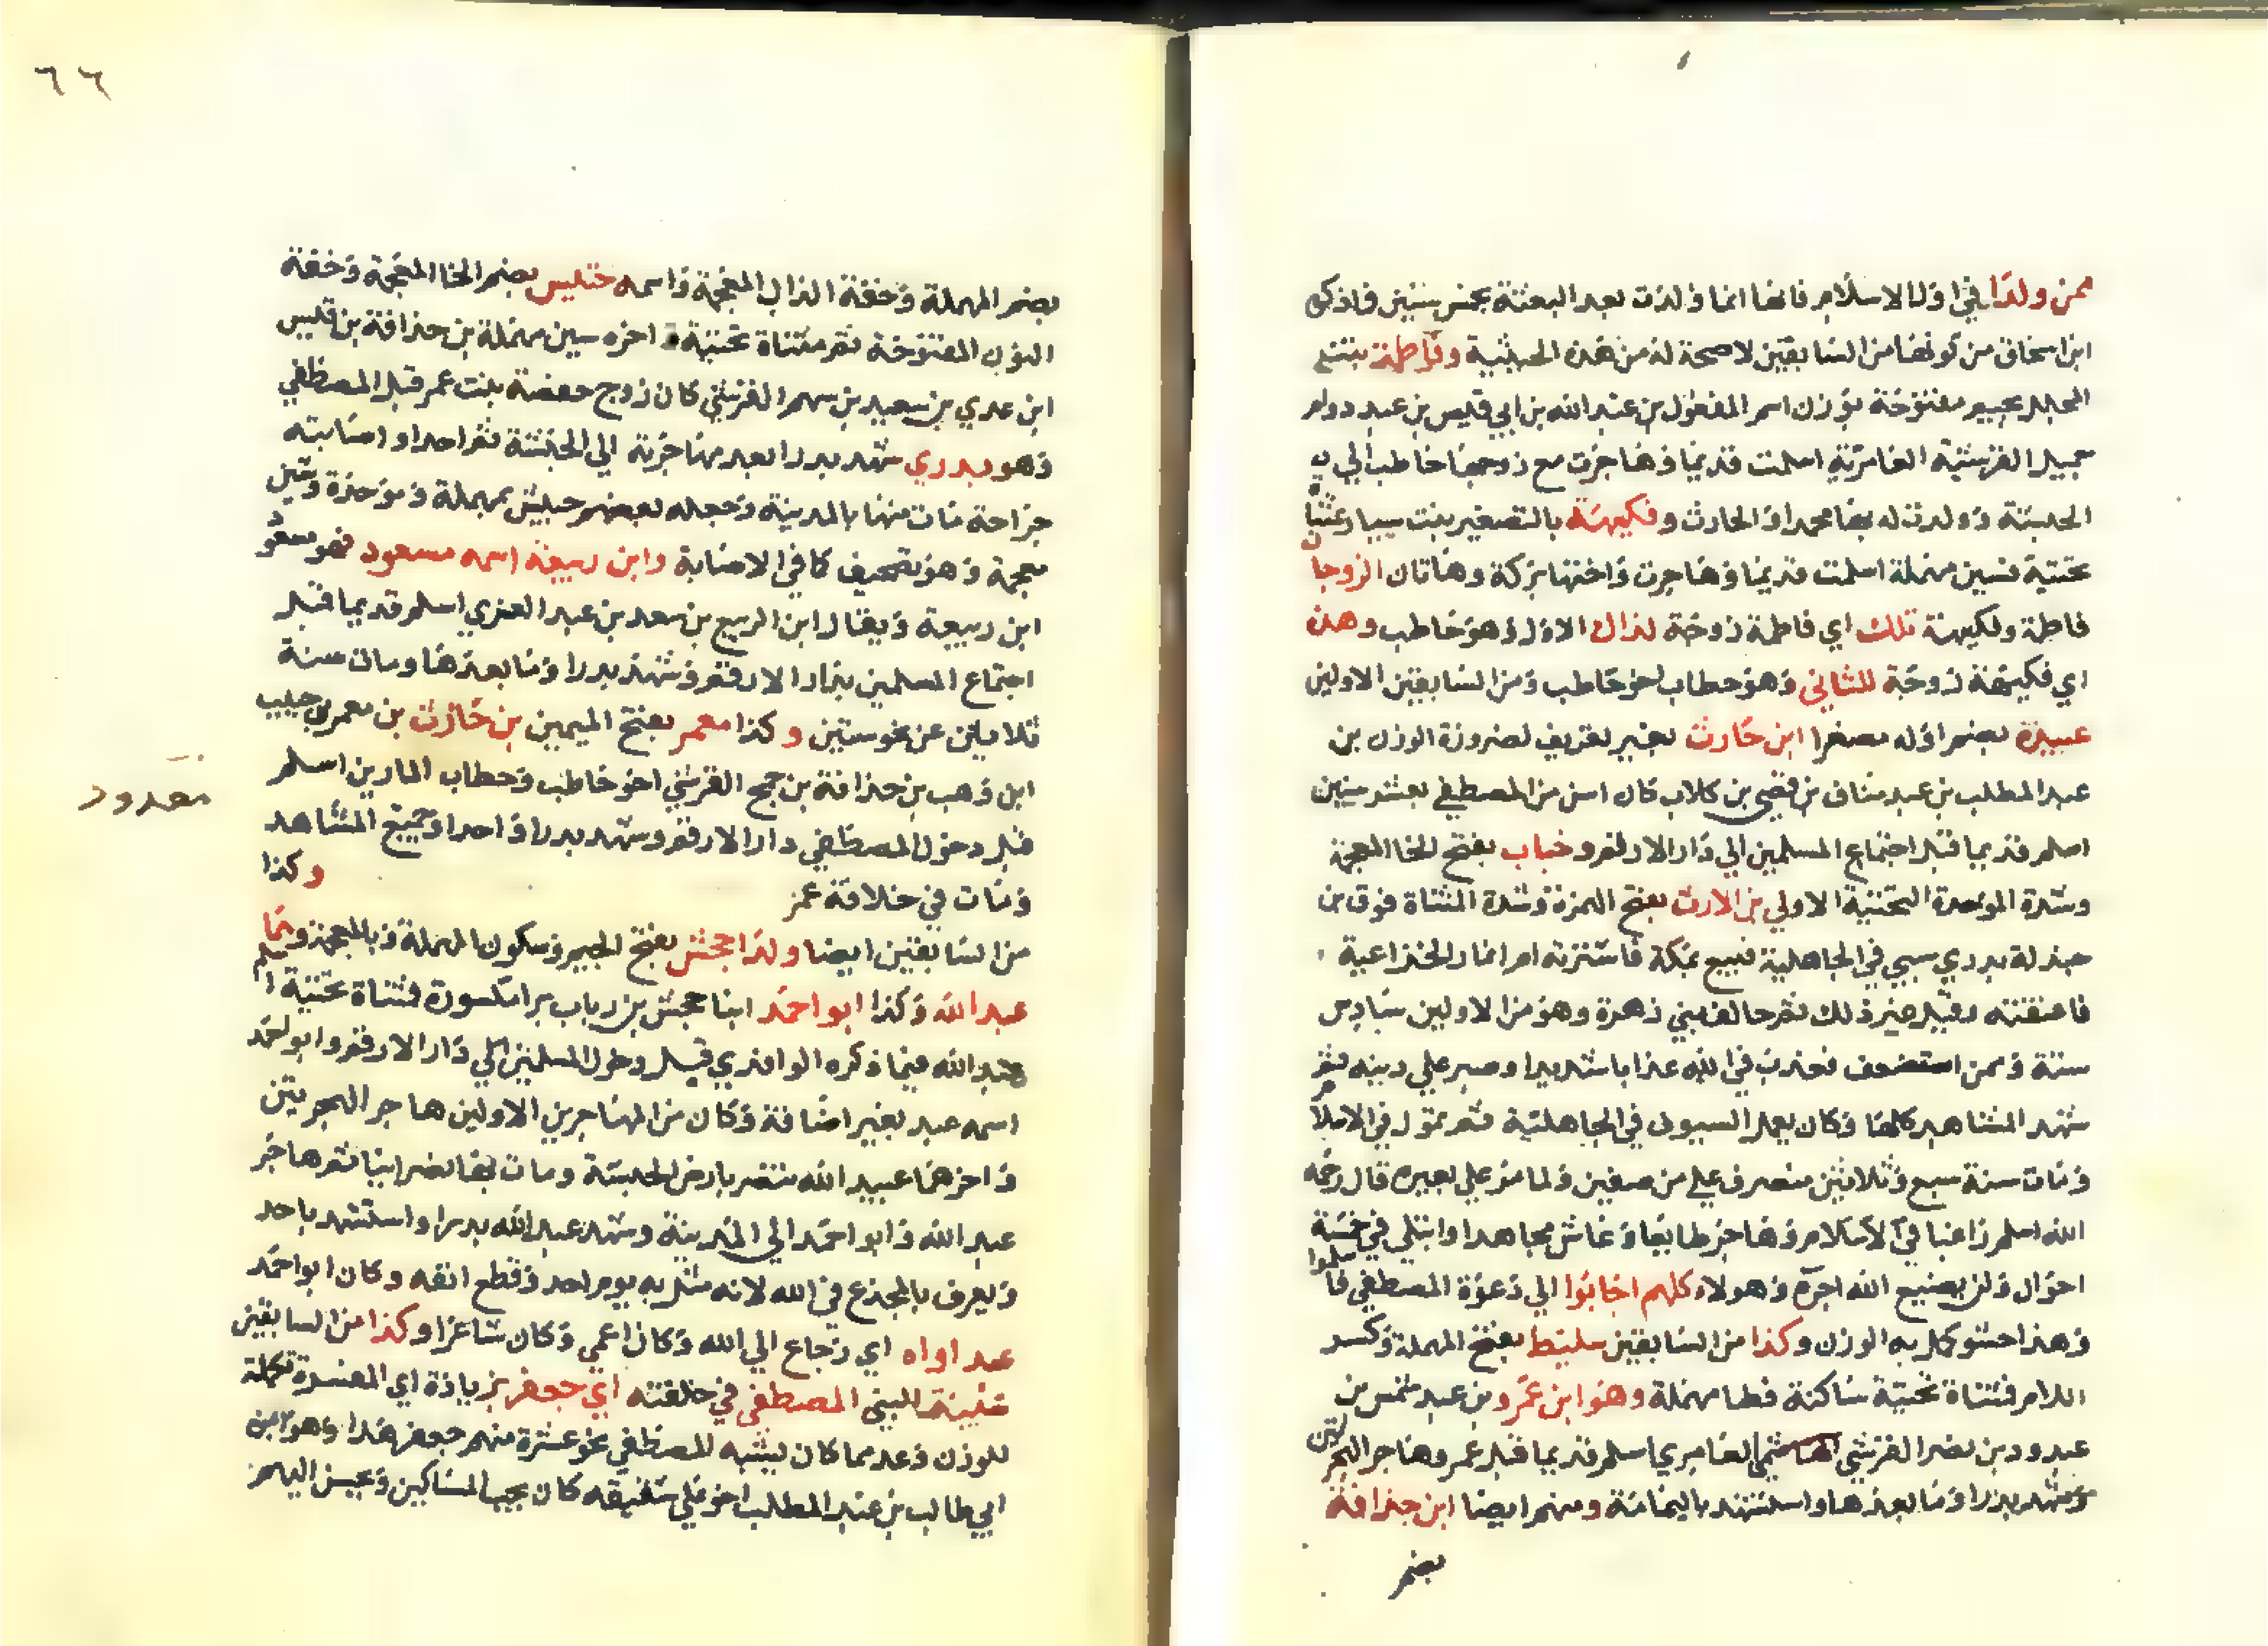 ممن ولدا في اول الاسلام فانها انما ولدت بعد البعثة بخمس سنين فاذكره
ابن اسحاق من كونها من السابقين لا صحة له من هذه الحيثية وفاطمة بنت
المجلل بجيم مفتوحة بوزن اسم المفعول بن عبد الله بن ابي قيس بن عبد ود
القرشية العامرية اسلمت قديما وهاجرت مع زوجها حاطب الي
الحبشة وولدت له بها محمدا والحارث وفكيهة بالتصغير بنت يسار
تحتية فسين مهملة اسلمت قديما وهاجرت واختها بركة وهاتان الزوجان
فاطمة وفكيهة تلك اي فاطمة زوجة لذاك الاول وهو حاطب وهذه
اي فكيهة زوجة للثاني وهو حطاب اخو حاطب ومن السابقين الاولين
عبيدة بضم اوله مصغرا ابن حارث بغير تعريف لضرورة الوزن بن
عبد المطلب بن عبد مناف بن قصي بن كلاب كان اسن من المصطفي بعشر سنين
اسلم قديما قبل اجتماع المسلمين الي دار الارقم وخباب بفتح الخا المعجمة
وشدة الموحدة التحتية الاولي بن الارت بفتح الهمزة وشدة المثناة فوق بن
جندلة بدري سبي في الجاهلية فبيع بمكة فاشترته ام انمار الخزاعية
فاعتقته وقيل غير ذلك ثم حالف بني زهرة وهو من الاولين سادس
ستة وممن استضعف فعذب في الله عذابا شديدا وصبر علي دينه ثم
شهد المشاهد كلها وكان يعمل السيوف في الجاهلية ثم تمول في الاسلام
ومات سنة سبع وثلاثين منصرف علي من صفين ولما مر علي بقبره قال رحمه
الله اسلم راغبا في الاسلام وهاجر طايعا وعاش مجاهدا وابتلي في جسمه
احوال ولن يضيع الله اجره وهولاء كلهم اجابوا الي دعوة المصطفي فاسلموا
وهذا حشو كمل به الوزن وكذا من السابقين سليط بفتح المهملة وكسر
اللام فمثناة تحتية ساكنة فطا مهملة وهو ابن عمرو بن عبد شمس بن
عبد ود بن نصر القرشي العامري اسلم قديما قبل عمر وهاجر الهجرتين
وشهد بدرا وما بعدها واستشهد باليمامة ومنهم ايضا ابن حذافة
بضم
٦٦
بضم المهملة وخفة الذال المعجمة واسمه خنيس بضم الخا المعجمة وخفة
النون المفتوحة ثم مثناة تحتية اخره سين مهملة بن حذافة بن قيس
ابن عدي بن سعيد بن سهم القرشي كان زوج حفصة بنت عمر قبل المصطفي
وهو بدري شهد بدرا بعد مهاجرته الي الحبشة ثم احدا واصابته
جراحة مات منها بالمدينة وجعله بعضهم حبيش بمهملة وموحدة وشين
معجمة وهو تصحيف كما في الاصابة وابن ربيعة اسمه مسعود فهو مسعود
ابن ربيعة ويقال ابن الربيع بن سعد بن عبد العزي اسلم قديما قبل
اجتماع المسلمين بدار الارقم وشهد بدرا وما بعدها ومات سنة
ثلاثين عن نحو ستين وكذا معمر بفتح الميمين بن حارث بن معمر بن حبيب
ابن وهب بن حذافة بن جمح القرشي اخو حاطب وحطاب المارين اسلم
قبل دخول المصطفي دار الارقم وشهد بدرا واحدا وجميع المشاهد
ومات في خلافة عمر وكذا
معدود
من السابقين ايضا ولدا جحش بفتح الجيم وسكون المهملة وبالمعجمة وهما
عبد الله وكذا ابو احمد ابنا جحش بن رياب برا مكسورة فمثناة تحتية اسلم
عبد الله فيما ذكره الواقدي قبل دخول المسلمين الي دار الارقم وابو احمد
اسمه عبد بغير اضافة وكان من المهاجرين الاولين هاجر الهجرتين
واخوهما عبيد الله تنصر بارض الحبشة ومات بها نصرانيا ثم هاجر
عبد الله وابو احمد الي المدينة وشهد عبد الله بدرا واستشهد باحد
ويعرف بالمجدع في الله لانه مثل به يوم احد وقطع انفه وكان ابو احمد
عبد اواه اي رجاع الي الله وكان اعمي وكان شاعرا وكذا من السابقين
شبيه النبي المصطفي في خلقته اي جعفر بزيادة اي المفسرة تكملة
للوزن وعد مما كان يشبه المصطفي نحو عشرة منهم جعفر هذا وهو ابن
ابي طالب بن عبد المطلب اخو علي شقيقه كان يحب المساكين ويحسن اليهم